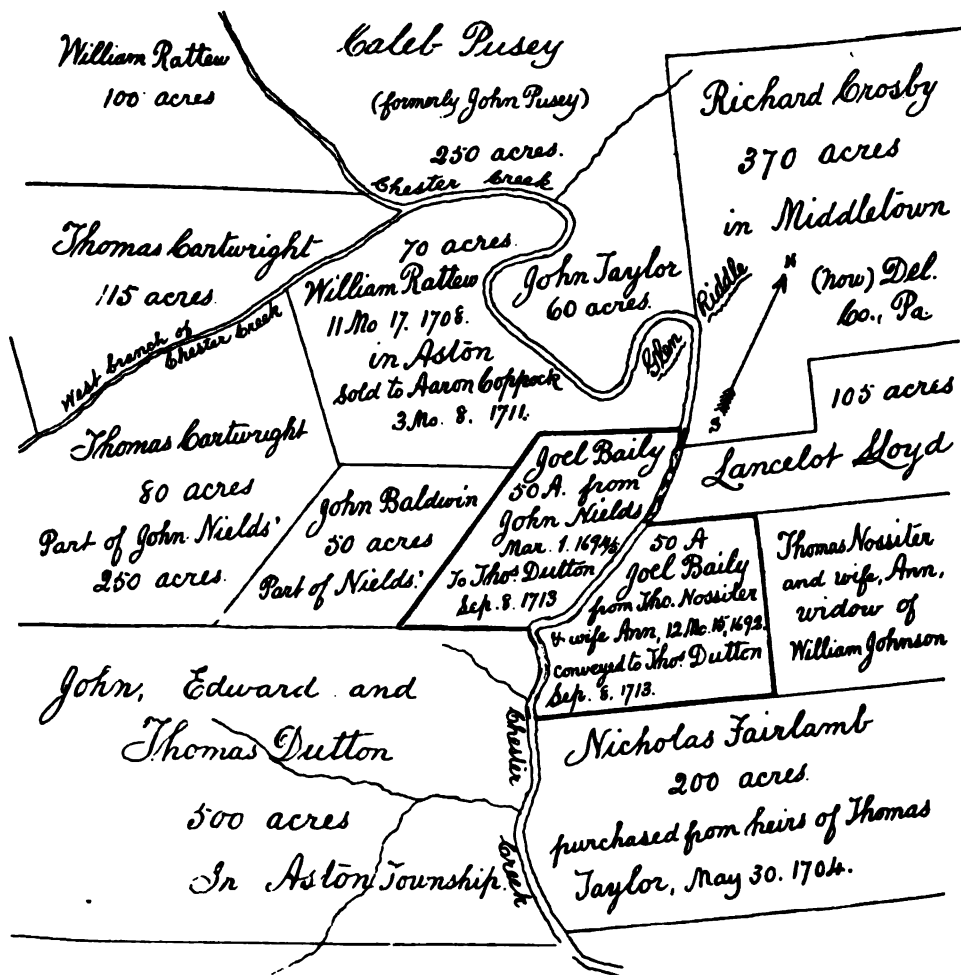 William Rattew
100 acres
Caleb Pusey
(formerly John Pusey)
250 acres.
Chester Creek
Richard Crosby
370 acres
in Middletown
(now) Del.
Co., Pa
N
S
Thomas Cartwright
115 acres.
West branch of
Chester Creek
70 acres.
William Rattew
11 Mo 17. 1708.
in Aston
Sold to Aaron Coppock
3 Mo. 8. 1711.
John Taylor
60 acres.
Glen
Riddle
105 acres
Lancelot Lloyd
Thomas Cartwright
80 acres
Part of John Nields'
250 acres.
John Baldwin
50 acres
Part of Nields'.
Joel Baily
50 A. from
John Nields
Mar. 1. 1694/5
To Thos. Dutton
Sep. 8. 1713
50 A
Joel Baily
from Tho. Nossiter
& wife Ann, 12 Mo. 15, 1692.
conveyed to Thos. Dutton
Sep. 8. 1713.
Thomas Nossiter
and wife, Ann,
widow of
William Johnson
John, Edward and
Thomas Dutton
500 acres
In Aston Township.
Chester Creek
Nicholas Fairlamb
200 acres.
purchased from heirs of Thomas
Taylor, May 30. 1704.